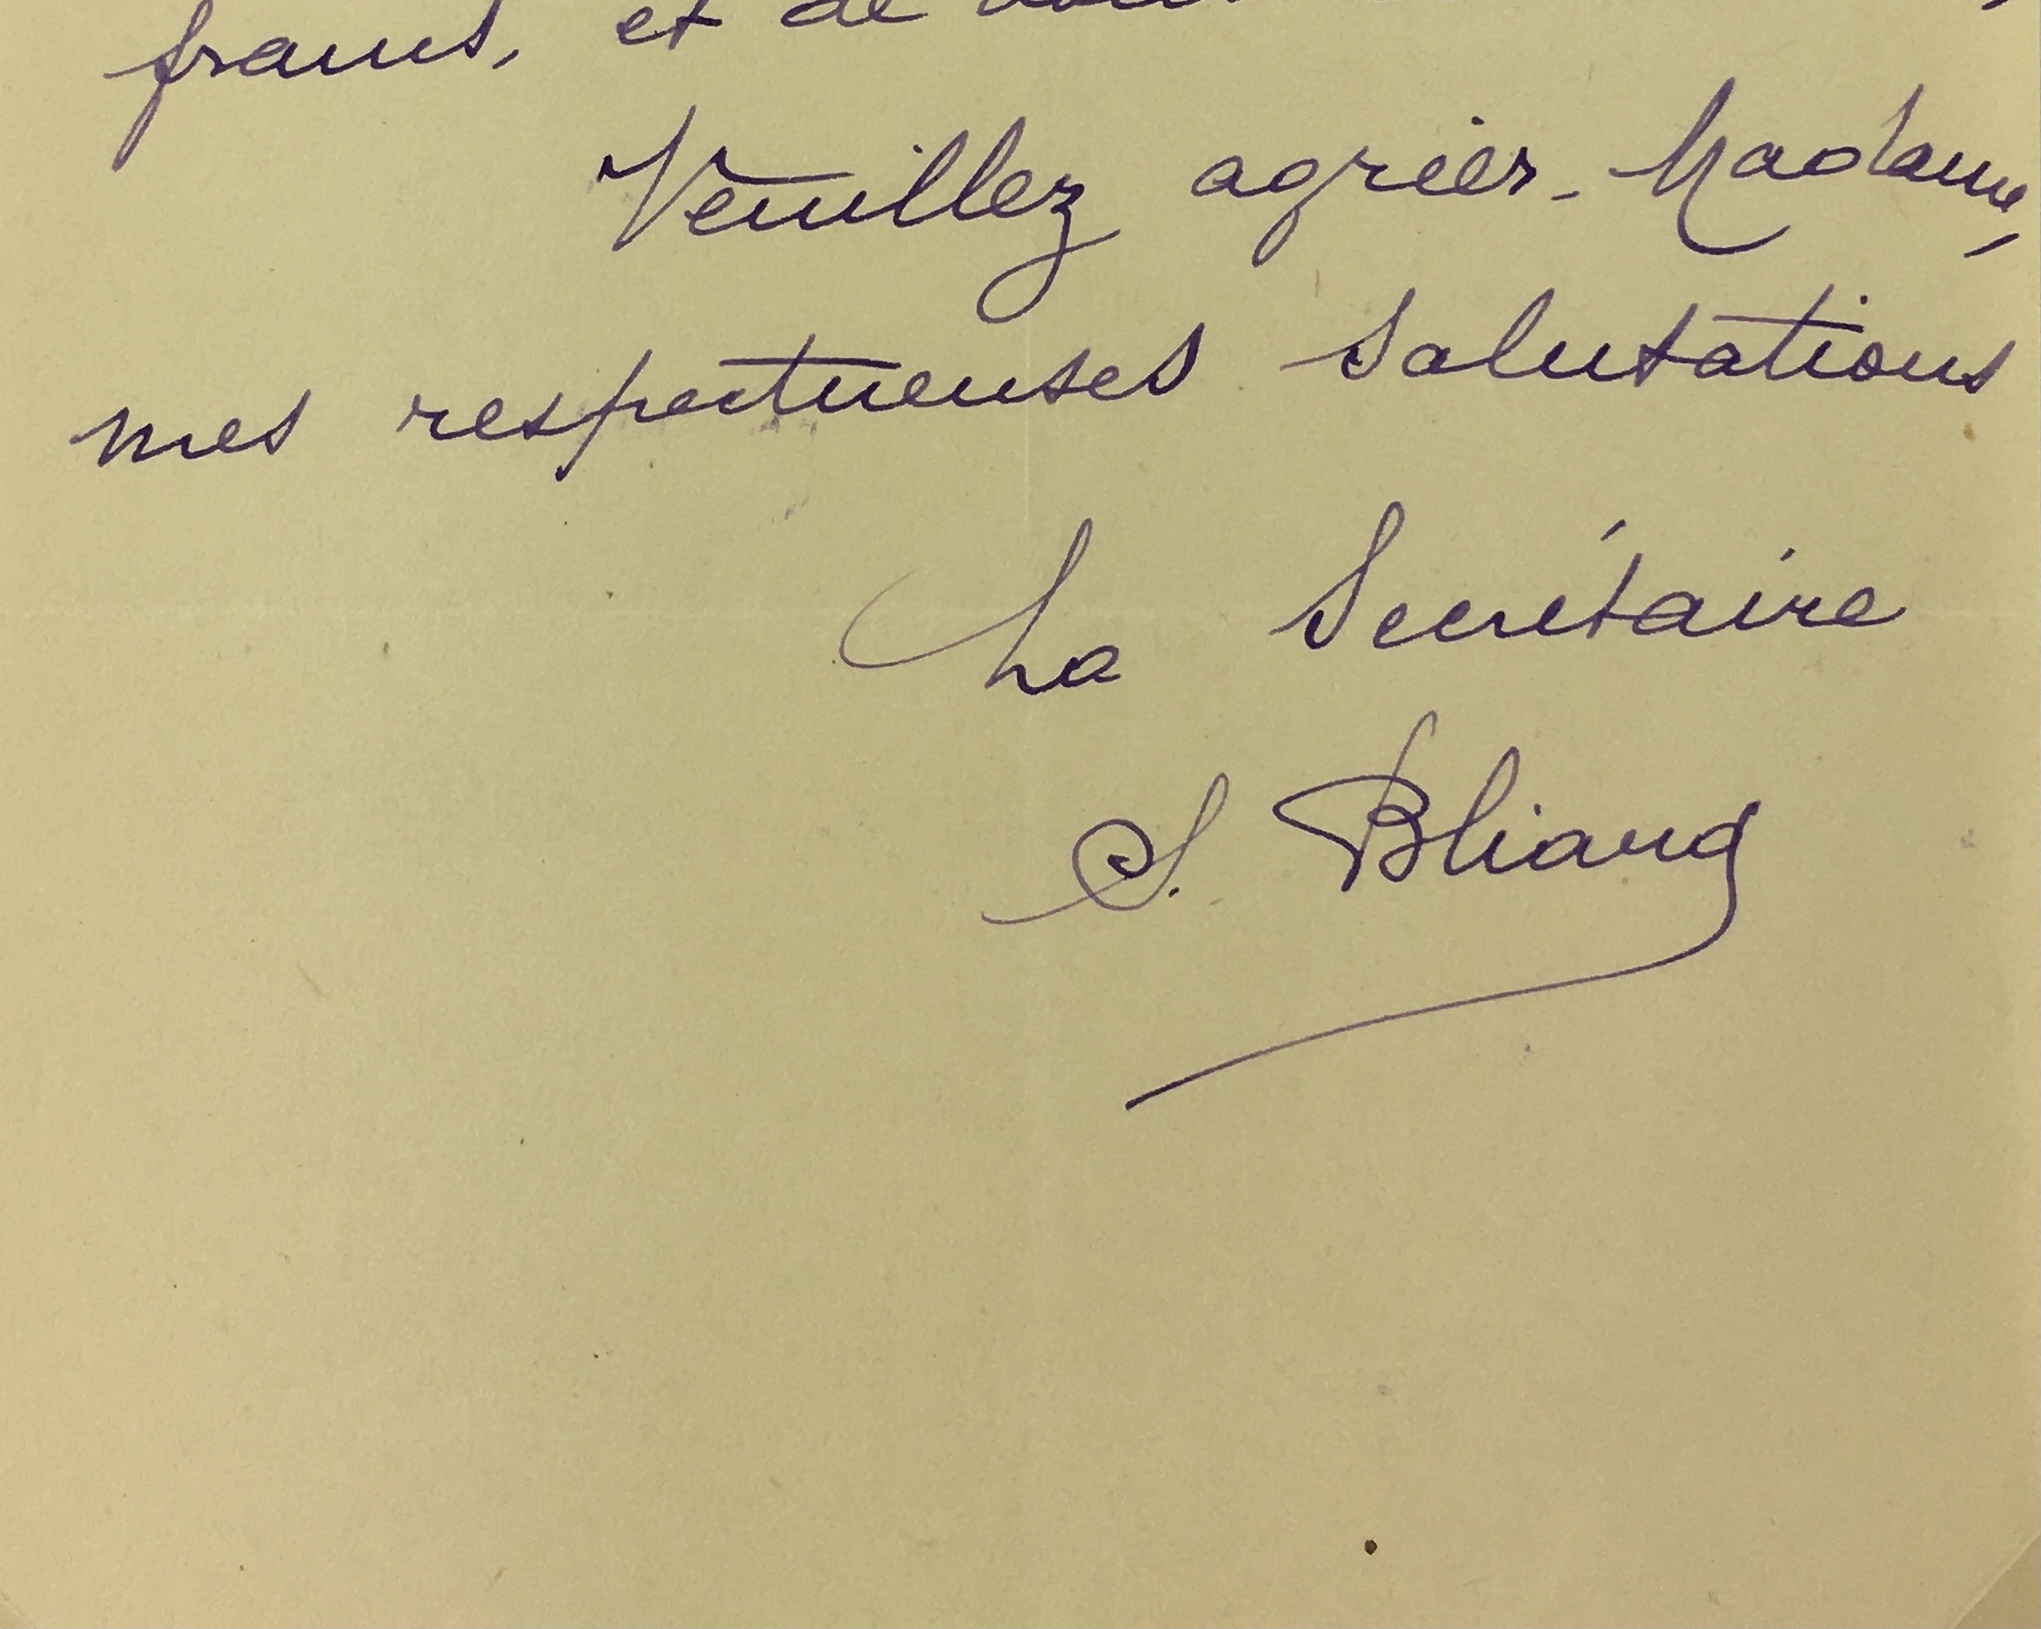 francs, et de
Veuillez agréer, Madame,
mes respectueuses salutations
La Secrétaire
S. Bliaud